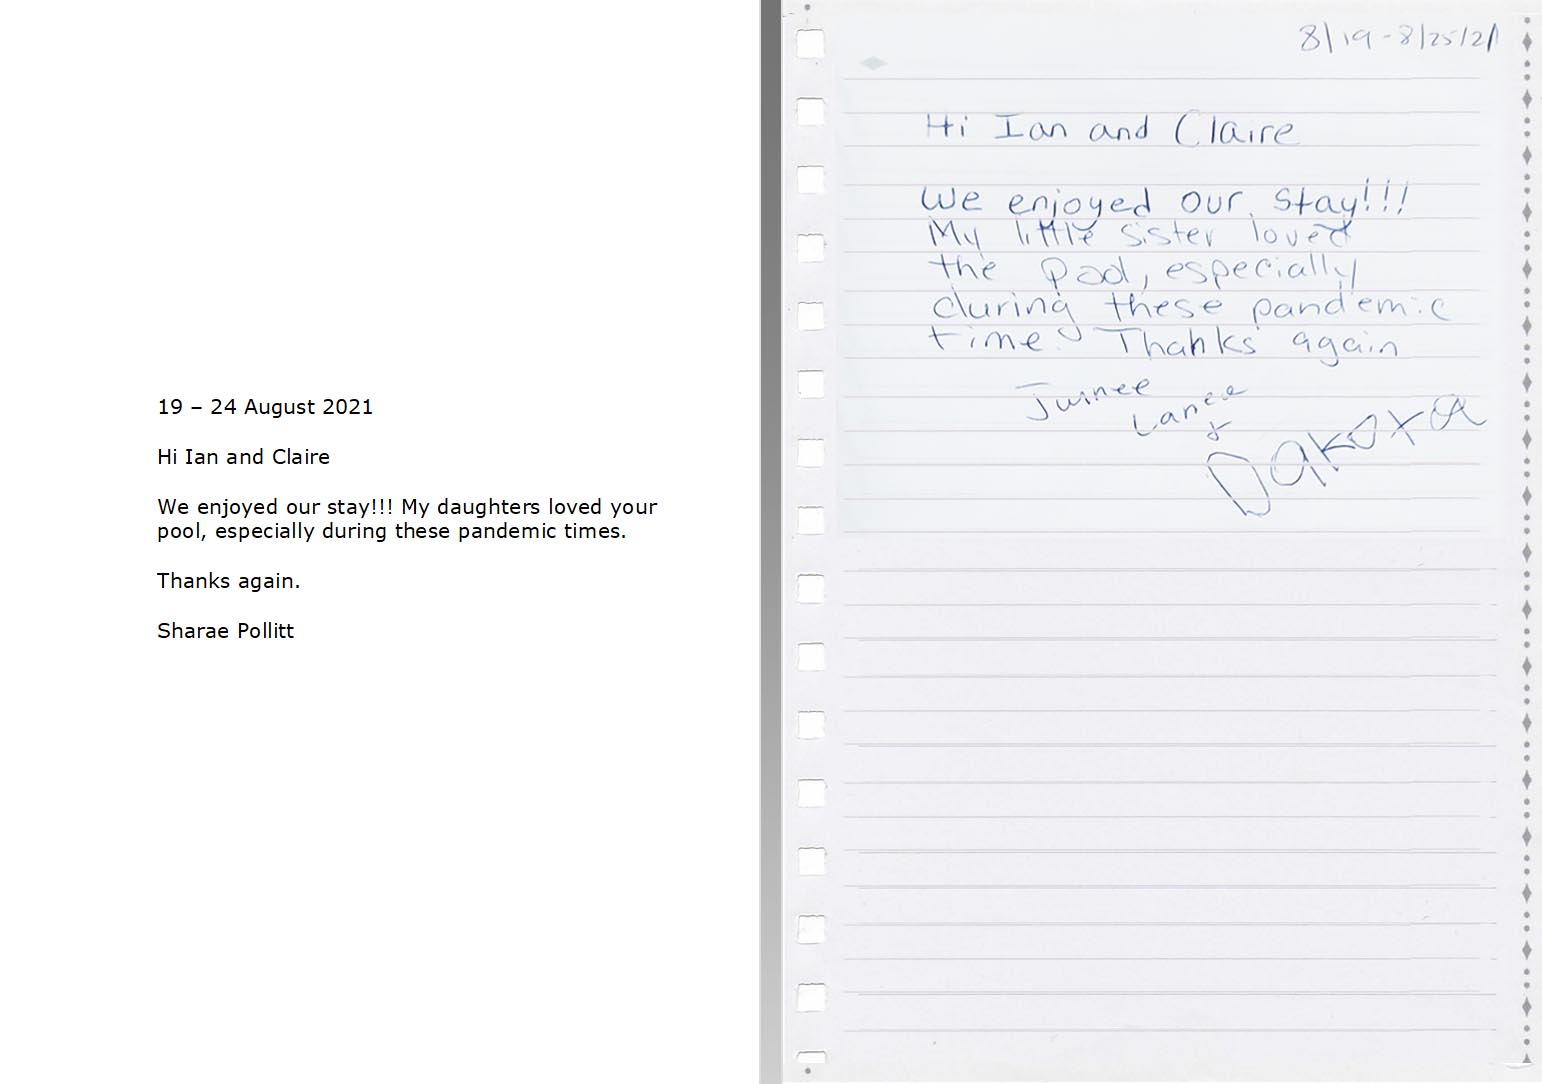 19 – 24 August 2021
Hi Ian and Claire
We enjoyed our stay!!! My daughters loved your
pool, especially during these pandemic times.
Thanks again.
Sharae Pollitt
8/19-8/25/21
Hi Ian and Claire
We enjoyed our stay!!!
My little sister loved
the pool, especially
during these pandemic
time. Thanks again